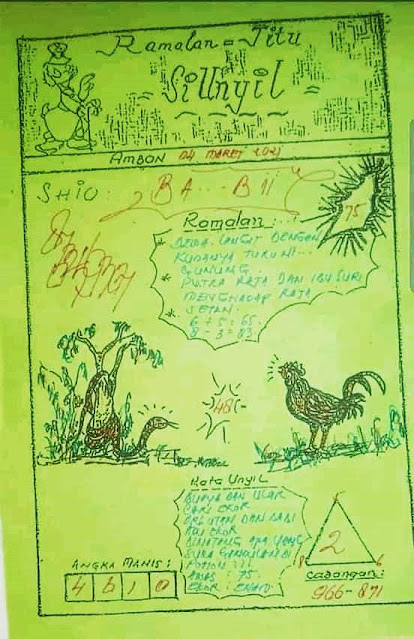 Ramalan = Jitu
SiUnyil
AMBON 04 MARET 2021
SHIO : BA .. BII
75
Ramalan :
* DEWA LANGIT DENGAN
KUDANYA TURUNI...
GUNUNG.
* PUTRA RAJA DAN IBU SURI
MENGHADAP RAJA
* SETAN.
6 + 5 = 65.
8 - 3 = 83
48
Kata Unyil
BUAYA DAN ULAR
CARI EKOR
DAN BABI
EKOR
BINATANG APA YANG
SUKA
POHON ???
: 75.
EKOR :
5
2
8 6
ANGKA MANIS :
4 6 1 0
Cadangan :
966 - 871